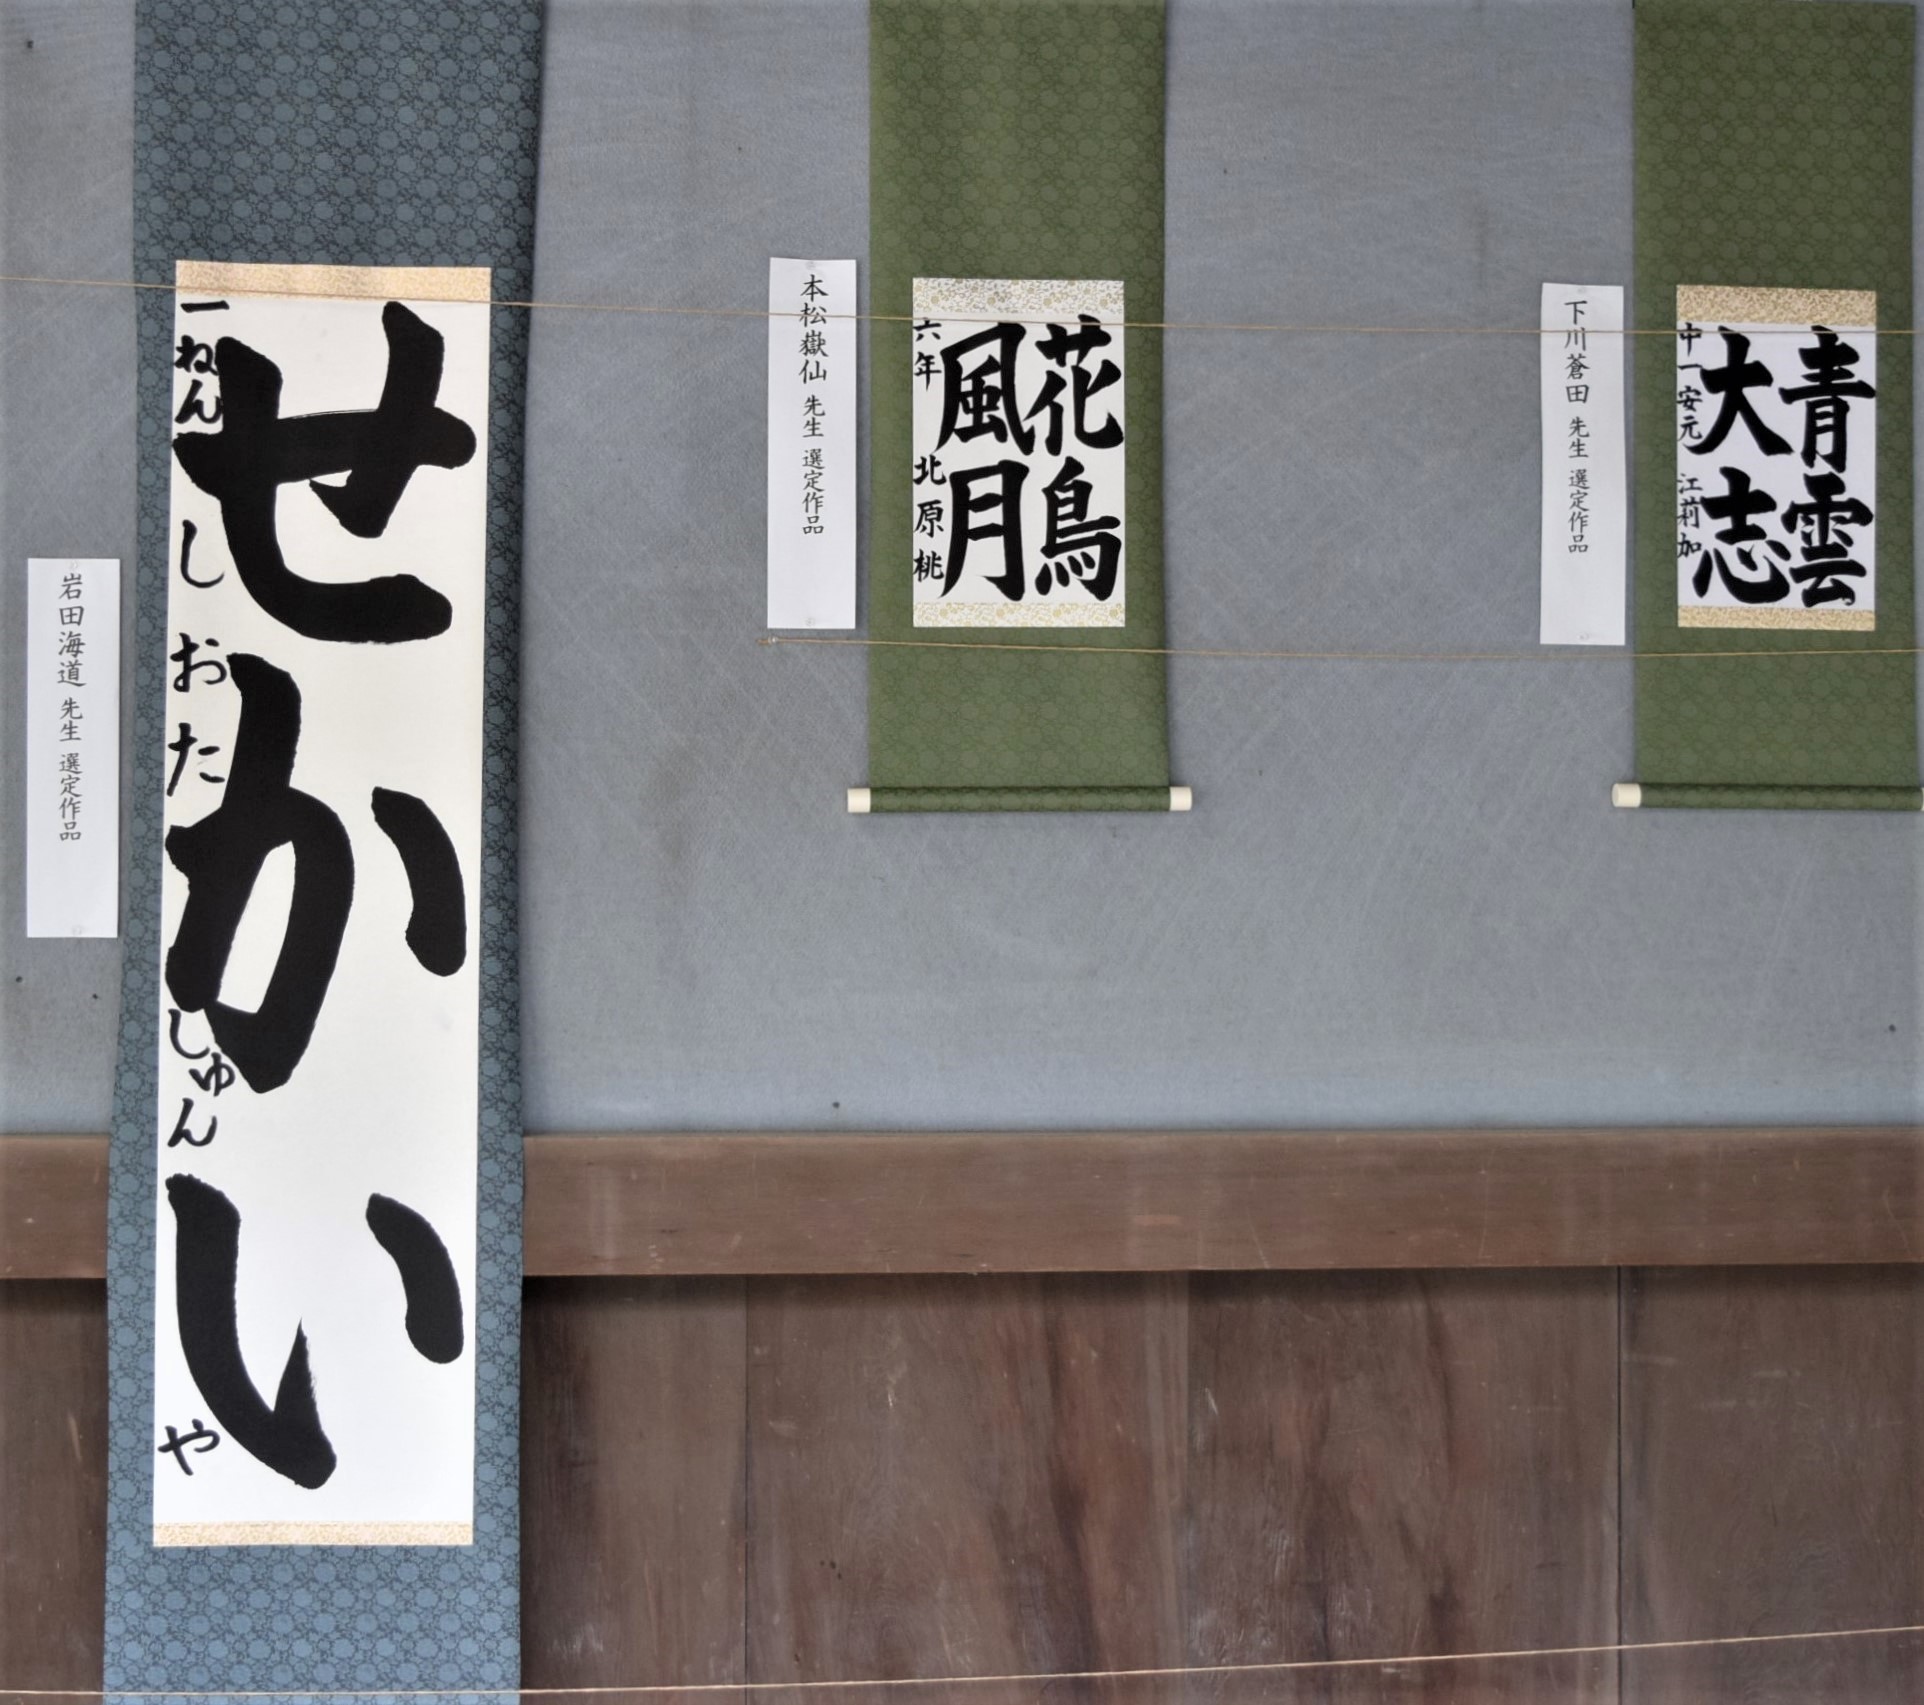 岩田海道 先生 選定作品
せかい
一ねん しおた しゅんや
本松嶽仙 先生 選定作品
花鳥
風月
六年 北原桃
下川蒼田 先生 選定作品
青雲
大志
中一 安元 江莉加